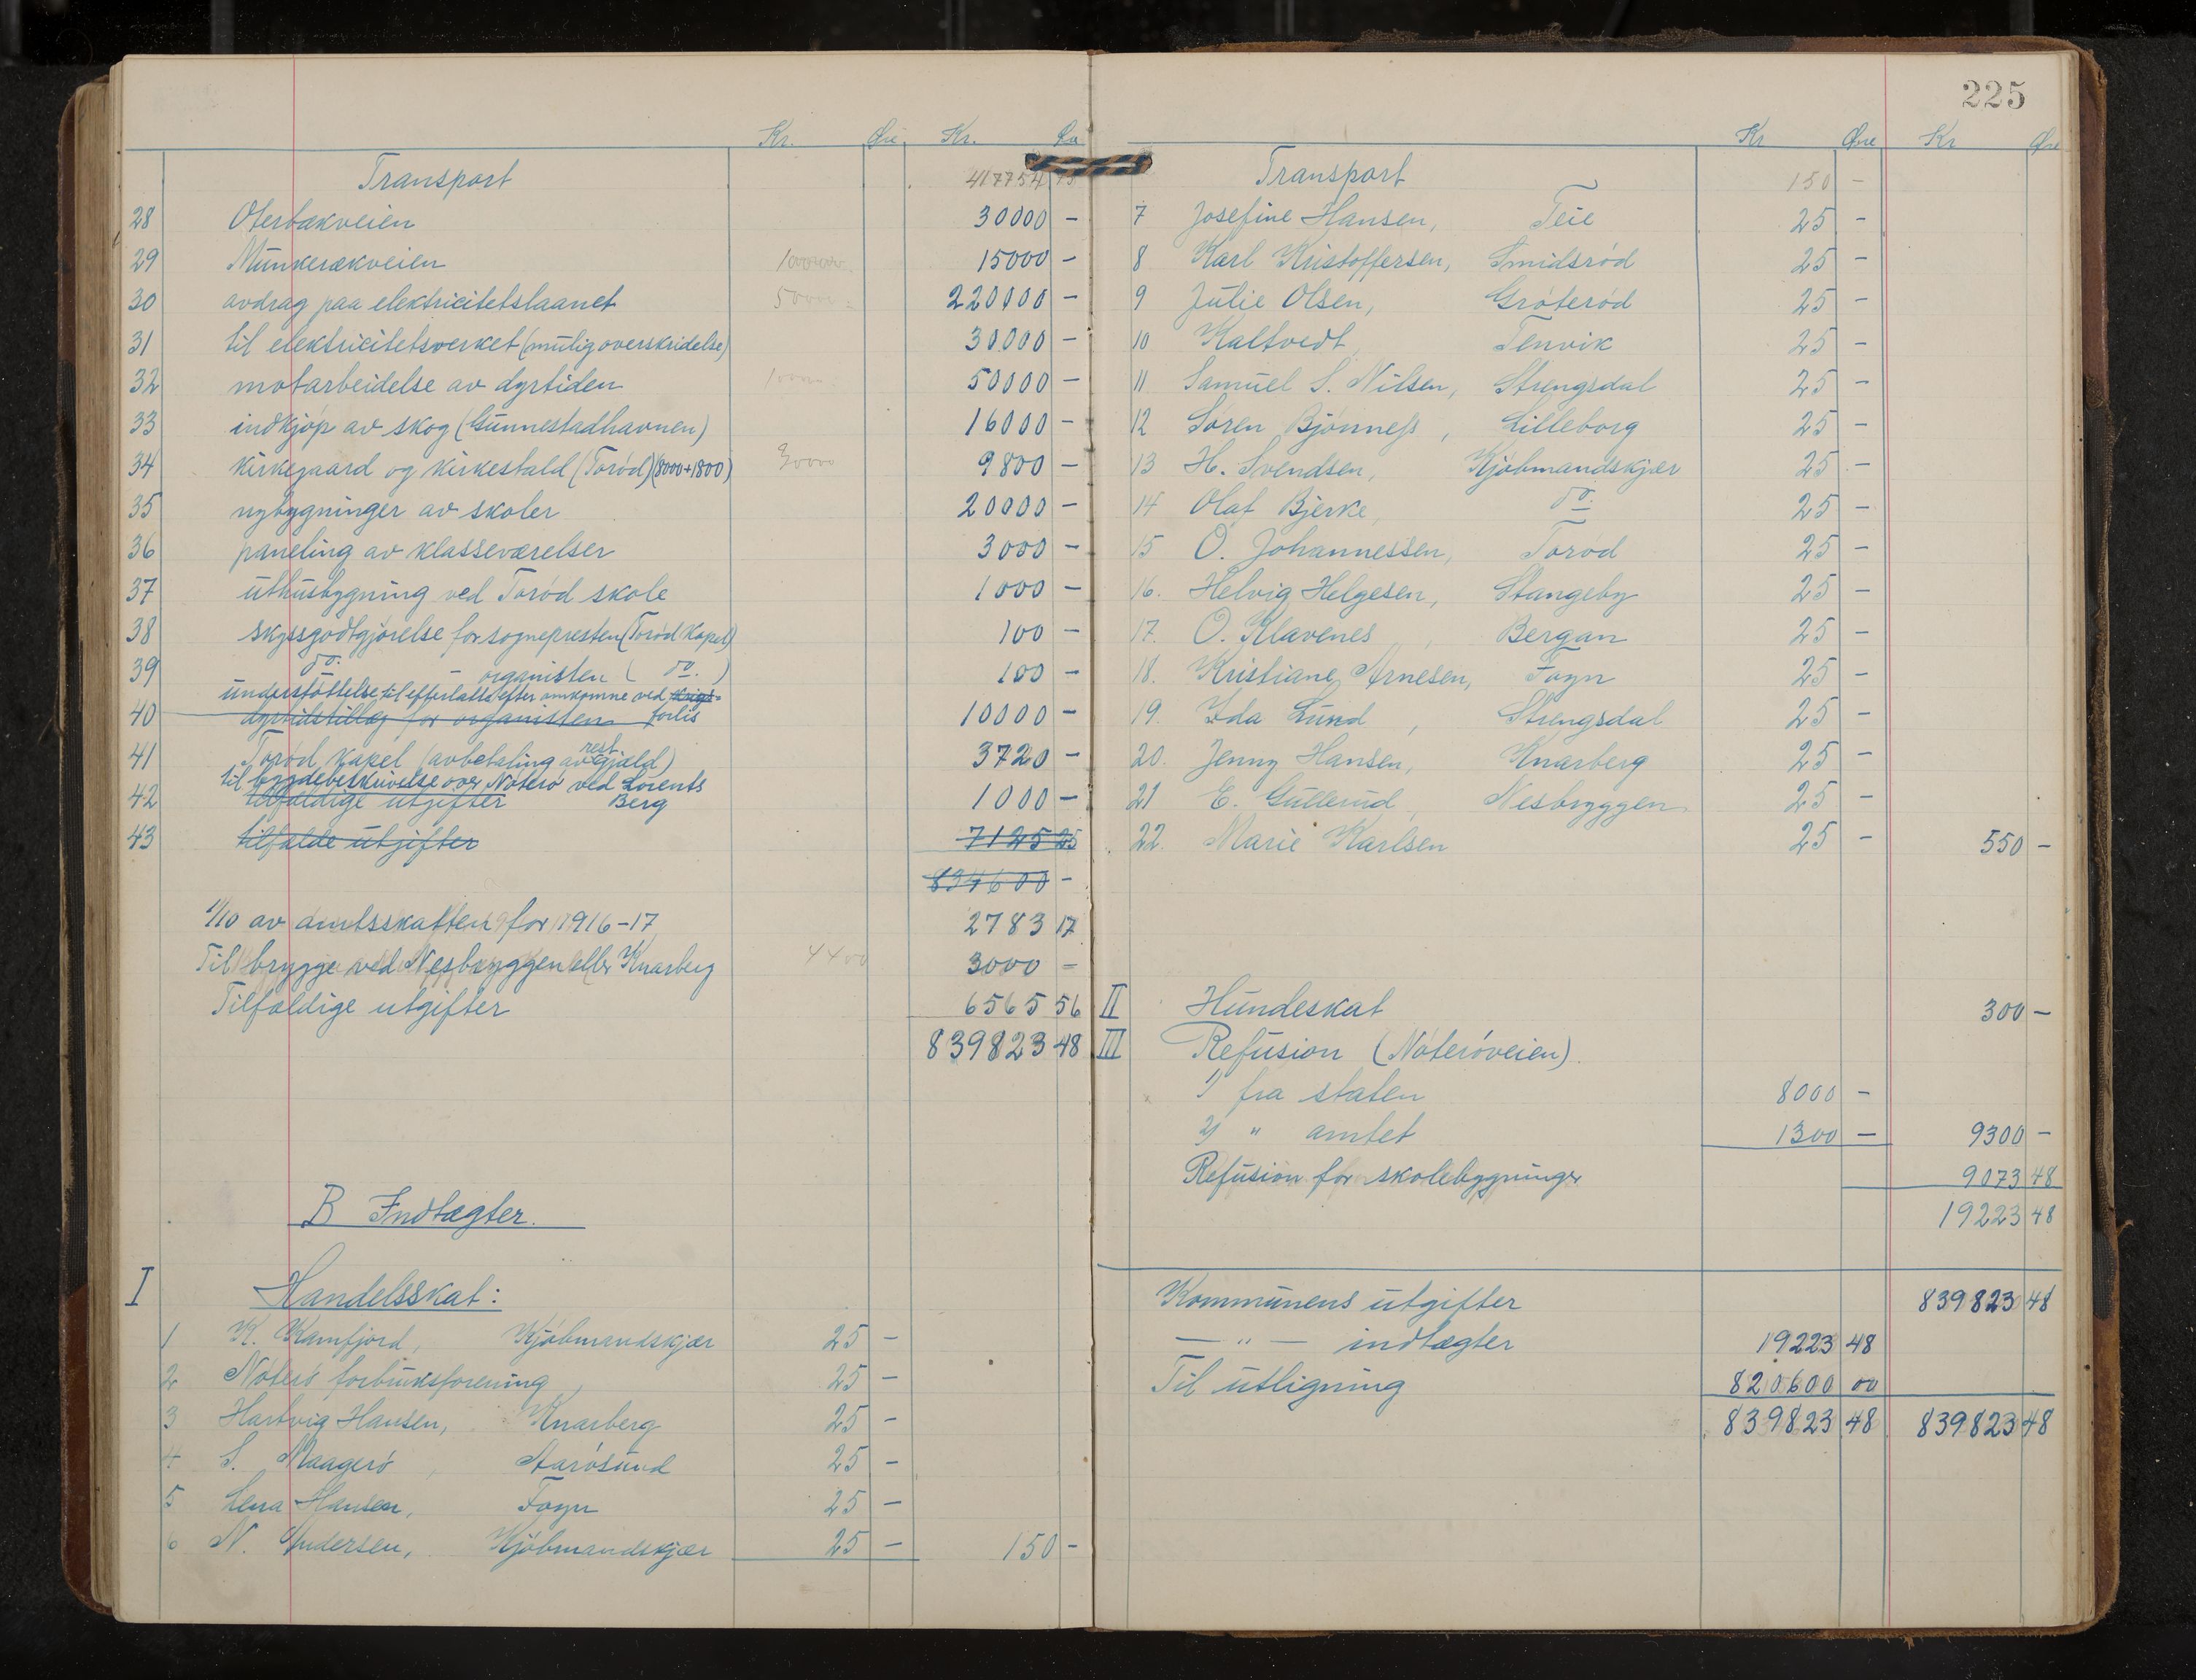 Kr. Øre Kr. Øre
Transport 417754 75
28 Oterbækveien 30000 -
29 Munkerækveien 15000 -
30 avdrag paa elektricitetslaanet 220000 -
31 til elektricitetsverket (mulig overskridelse) 30000 -
32 motarbeidelse av dyrtiden 50000 -
33 indkjøp av skog (Gunnestadhavnen) 16000 -
34 kirkegaard og kirkestald (Torød) (8000+1800) 30000 9800 -
35 nybygninger av skoler 20000 -
36 paneling av klasseværelser 3000 -
37 uthusbygning ved Torød skole 1000 -
38 skyssgodtgjørelse for sognepresten (Torød kapel) 100 -
39 do. - organisten ( do. ) 100 -
understøttelse til efterlatte efter omkomne ved krigs-
40 dyrtidstillæg for organisten forlis 10000 -
41 Torød kapel (avbetaling av rest gjæld) 3720 -
til bygdebeskrivelse over Nøterø ved Lorents
42 tilfældige utgifter Berg 1000 -
43 tilfælde utgifter 7125 25
834600 -
1/10 av amtsskatten for 1916-17 2783 17
Til brygge ved Nesbryggen eller Knarberg 4400 3000 -
Tilfældige utgifter 6565 56
839823 48
B Indtægter.
I Handelsskat:
1 K. Kamfjord, Kjøbmandskjær 25 -
2 Nøterø forbruksforening, 25 -
3 Hartvig Hansen, Knarberg 25 -
4 S. Maagerø, Aarøsund 25 -
5 Lena Hansen, Føyn 25 -
6 N. Andersen, Kjøbmandskjær 25 - 150 -
225
Kr Øre Kr Øre
Transport 150 -
7 Josefine Hansen, Teie 25 -
8 Karl Kristoffersen, Smidsrød 25 -
9 Julie Olsen, Grøterød 25 -
10 Kaltvedt, Tenvik 25 -
11 Samuel S. Nilsen, Strengsdal 25 -
12 Søren Bjønness, Lilleborg 25 -
13 H. Svendsen, Kjøbmandskjær 25 -
14 Olaf Bjerke, do. 25 -
15 O. Johannessen, Torød 25 -
16. Helvig Helgesen, Stangeby 25 -
17. O. Klavenes, Bergan 25 -
18. Kristiane Arnesen, Føyn 25 -
19. Ida Lund, Strengsdal 25 -
20. Jenny Hansen, Knarberg 25 -
21 E. Gullerud, Nesbryggen 25 -
22. Marie Karlsen 25 - 550 -
II Hundeskat 300 -
III Refusion (Nøterøveien).
1) fra staten 8000 -
2) " amtet 1300 - 9300 -
Refusion for skolebygninger 9073 48
19223 48
Kommunens utgifter 839823 48
— " — indtægter 19223 48
Til utligning 820600 00
839823 48 839823 48